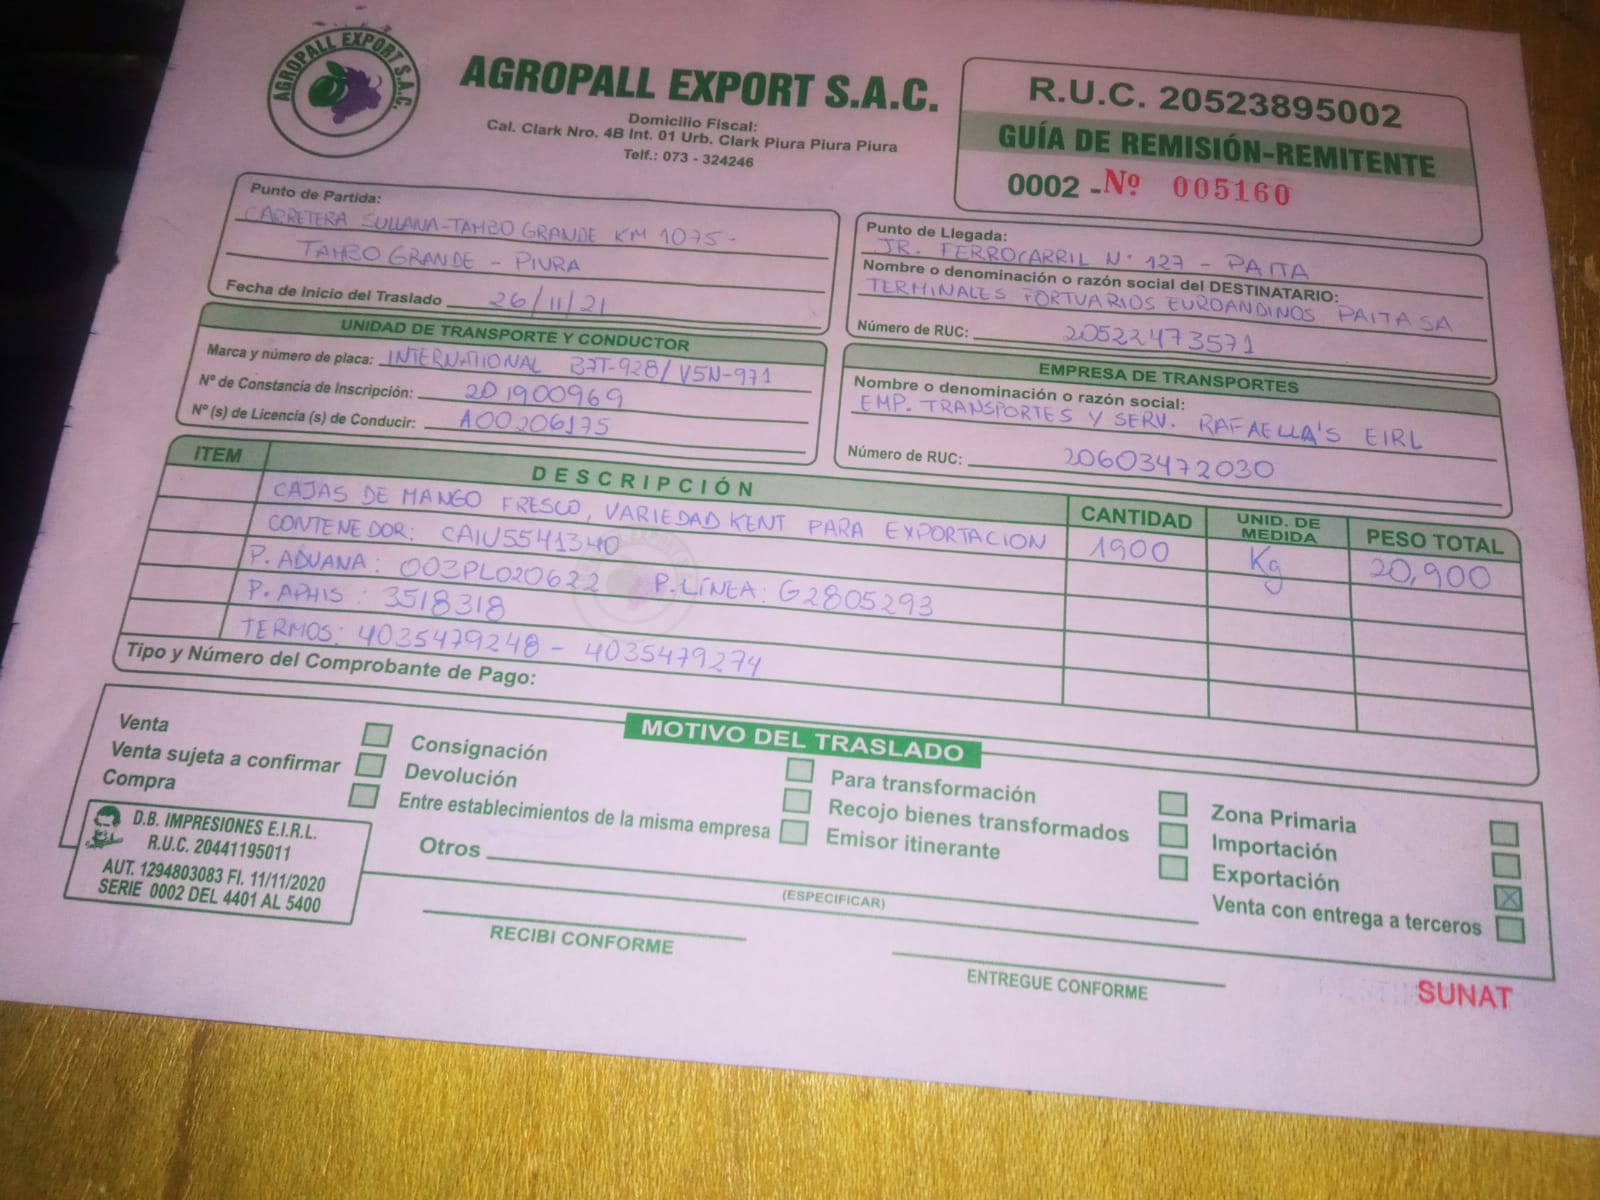 AGROPALL EXPORT S.A.C.
AGROPALL EXPORT S.A.C.
Domicilio Fiscal:
Cal. Clark Nro. 4B Int. 01 Urb. Clark Piura Piura Piura
Telf.: 073 - 324246
R.U.C. 20523895002
GUÍA DE REMISIÓN-REMITENTE
0002 - Nº 005160
Punto de Partida:
CARRETERA SULLANA-TAMBO GRANDE KM 1075 -
TAMBO GRANDE - PIURA
Fecha de Inicio del Traslado 26/11/21
Punto de Llegada:
JR. FERROCARRIL N° 127 - PAITA
Nombre o denominación o razón social del DESTINATARIO:
TERMINALES PORTUARIOS EUROANDINOS PAITA SA
Número de RUC: 20522473571
UNIDAD DE TRANSPORTE Y CONDUCTOR
Marca y número de placa: INTERNATIONAL B7T-928/V5N-971
Nº de Constancia de Inscripción: 201900969
Nº (s) de Licencia (s) de Conducir: A00206175
EMPRESA DE TRANSPORTES
Nombre o denominación o razón social:
EMP. TRANSPORTES Y SERV. RAFAELLA'S EIRL
Número de RUC: 20603472030
ITEM DESCRIPCIÓN CANTIDAD UNID. DE MEDIDA PESO TOTAL
CAJAS DE MANGO FRESCO, VARIEDAD KENT PARA EXPORTACION 1900 Kg 20,900
CONTENEDOR: CAIU5541340
P. ADUANA: 003PL020622 P. LÍNEA: G2805293
P. APHIS: 3518318
TERMOS: 4035479248 - 4035479274
Tipo y Número del Comprobante de Pago:
MOTIVO DEL TRASLADO
Venta
Venta sujeta a confirmar
Compra
Consignación
Devolución
Entre establecimientos de la misma empresa
Para transformación
Recojo bienes transformados
Emisor itinerante
Zona Primaria
Importación
Exportación X
Venta con entrega a terceros
Otros
(ESPECIFICAR)
D.B. IMPRESIONES E.I.R.L.
R.U.C. 20441195011
AUT. 1294803083 FI. 11/11/2020
SERIE 0002 DEL 4401 AL 5400
RECIBI CONFORME
ENTREGUE CONFORME
SUNAT